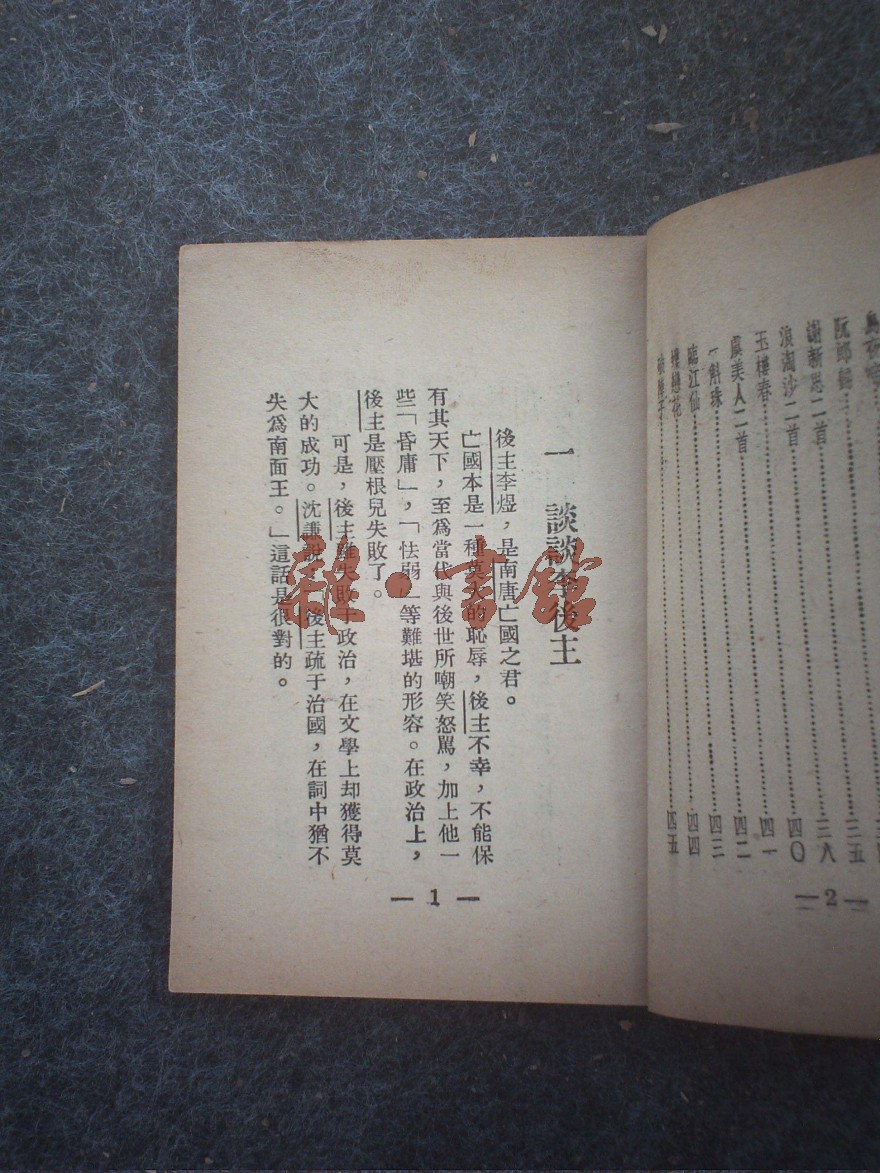 烏夜啼
阮郎歸……三五
謝新恩二首……三八
浪淘沙二首……四〇
玉樓春……四一
虞美人二首……四二
一斛珠……四三
臨江仙……四四
蝶戀花
破陣子……四五
— 2 —
一　談談李後主
後主李煜，是南唐亡國之君。
亡國本是一種莫大的恥辱，後主不幸，不能保
有其天下，至爲當代與後世所嘲笑怒駡，加上他一
些「昏庸」，「怯弱」等難堪的形容。在政治上，
後主是壓根兒失敗了。
可是，後主雖失敗于政治，在文學上却獲得莫
大的成功。沈謙說：「後主疏于治國，在詞中猶不
失爲南面王。」這話是很對的。
— 1 —
雜·書館